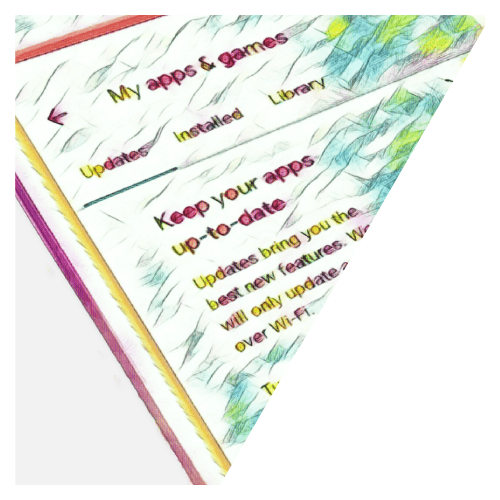 My apps & games
Updates Installed Library
Keep your apps
up-to-date
Updates bring you the
best new features.
will only update
over Wi-Fi.